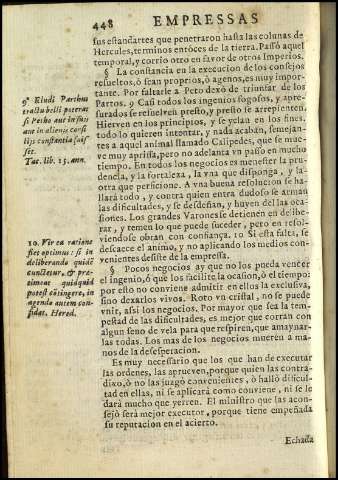 448 EMPRESSAS
sus estandartes que penetraron hasta las colunas de
Hercules, terminos entõces de la tierra. Passò aquel
temporal, y corrio otro en favor de otros Imperios.
§ La constancia en la execucion de los consejos
resueltos, ò sean proprios, ò agenos, es muy impor-
tante. Por faltarle a Peto dexò de triunfar de los
Partos. 9 Casi todos los ingenios fogosos, y apre-
surados se resuelven presto, y presto se arrepienten.
Hierven en los principios, y se yelan en los fines.
todo lo quieren intentar, y nada acaban, semejan-
tes a aquel animal llamado Calipedes, que se mue-
ve muy aprissa, pero no adelanta vn passo en mucho
tiempo. En todos los negocios es menester la pru-
dencia, y la fortaleza, la vna que disponga, y la-
otra que perficione. A vna buena resolucion se ha-
llarà todo, y contra quien entra dudoso se arman
las dificultades, y se desdeñan, y huyen del las oca-
siones. Los grandes Varones se detienen en delibe-
rar, y temen lo que puede suceder, pero en resol-
viendose obran con confiança. 10 Si esta falta, se
descaece el animo, y no aplicando los medios con-
venientes desiste de la empressa.
§ Pocos negocios ay que no los pueda vencer
el ingenio, ò que los facilite la ocasion, ò el tiempo:
por esto no conviene admitir en ellos la exclusiva,
sino dexarlos vivos. Roto vn cristal, no se puede
vnir, assi los negocios. Por mayor que sea la tem-
pestad de las dificultades, es mejor que corran con
algun seno de vela para que respiren, que amaynar-
las todas. Los mas de los negocios mueren a ma-
nos de la desesperacion.
Es muy necessario que los que han de executar
las ordenes, las aprueven, porque quien las contra-
dixo, ò no las juzgò convenientes, ò hallò dificul-
tad en ellas, ni se aplicarà como conviene, ni se le
darà mucho que yerren. El ministro que las acon-
sejò serà mejor executor, porque tiene empeñada
su reputacion en el acierto.
Echada
9. Eludi Parthus
tractu belli poterat
si Petho aut in suis
aut in alienis consi
lijs constantia fuis-
set.
Tac. lib. 15. ann.
10. Vir ea ratione
fiet optimus: si in
deliberando quidē
cunctetur, & præ-
timeat quidquid
potest cōtingere, in
agendo autem con-
fidat. Herod.